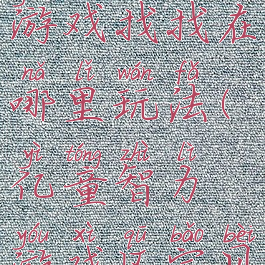 游戏找找在
nǎ lǐ wán fǎ
哪里玩法(
yì tóng zhì lì
亿童智力
yóu xì qū bǎo bèi
游戏区宝贝